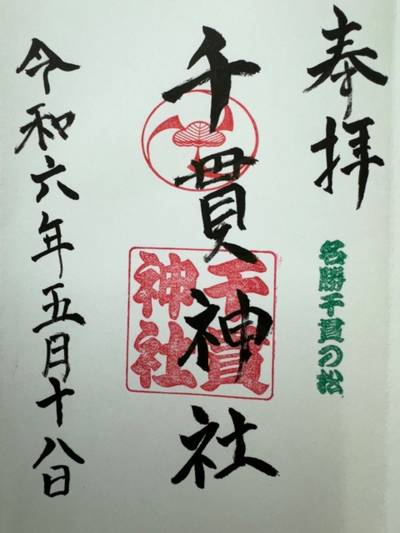 奉拝
名勝千貫の松
千貫神社
千貫
神社
令和六年五月十八日